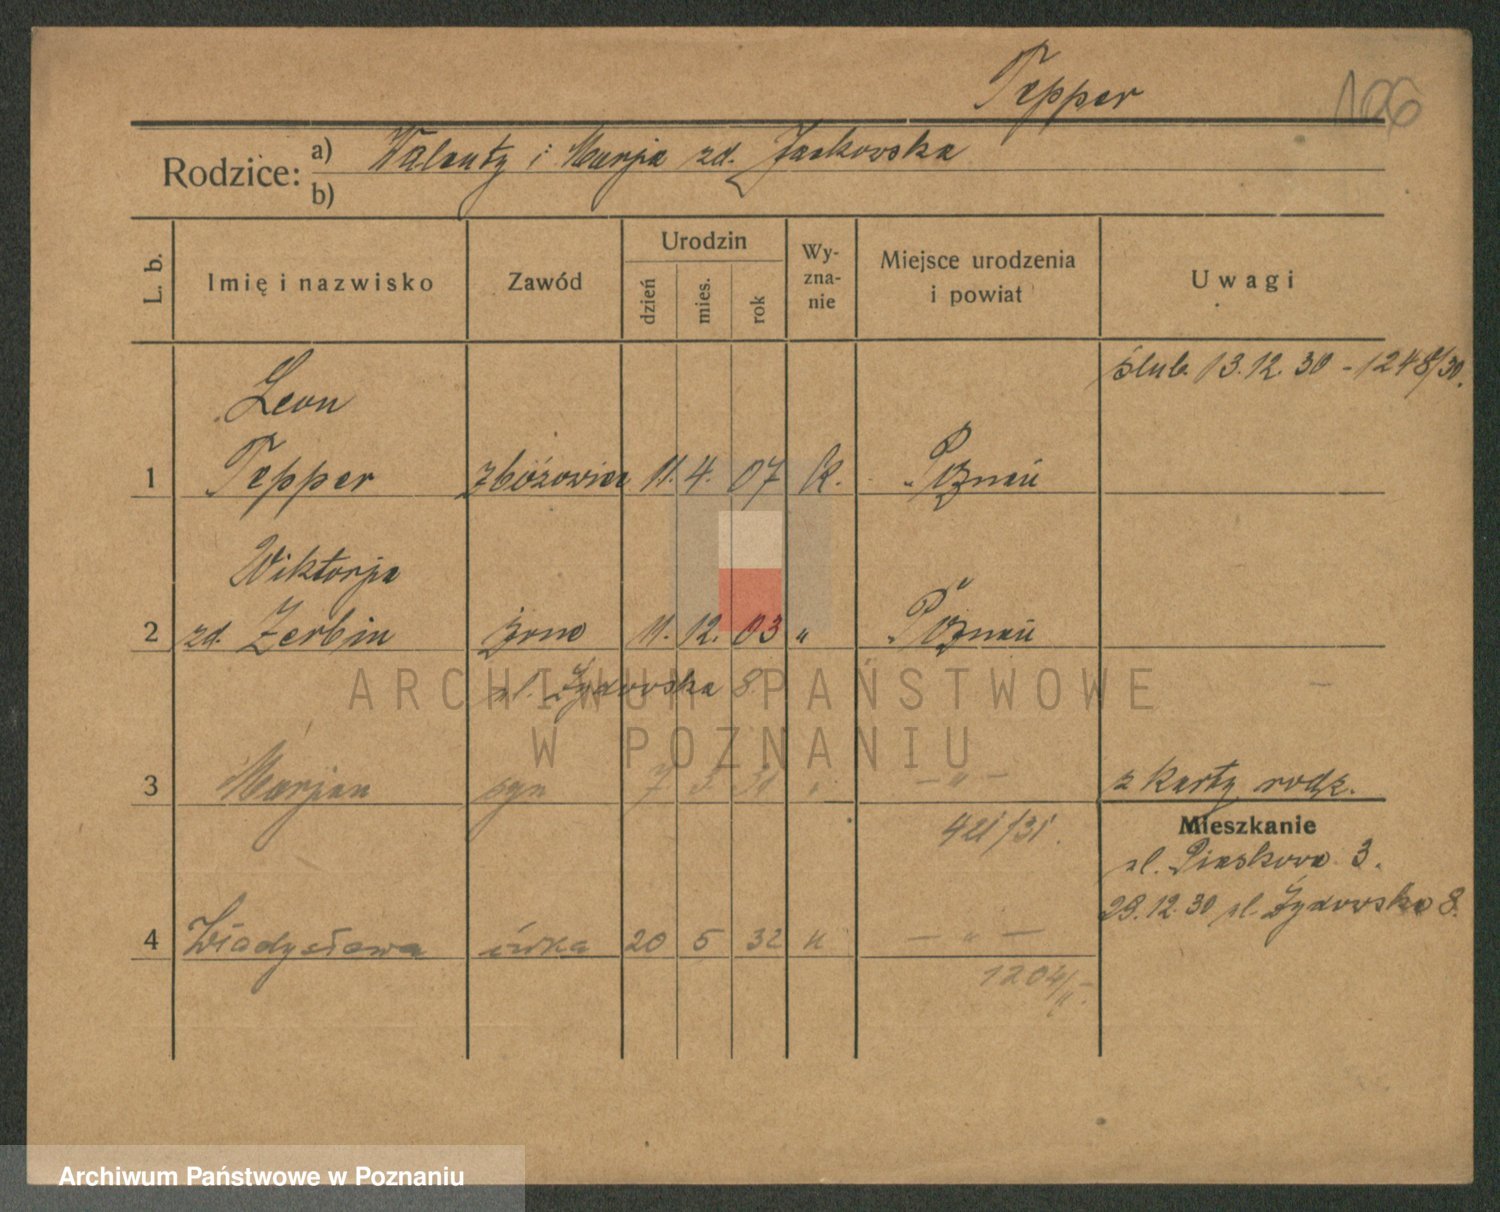 Tepper
106
Rodzice: a) Walenty i Marja zd. Jackowska
b)
L. b. Imię i nazwisko Zawód Urodzin dzień mies. rok Wy-zna-nie Miejsce urodzenia i powiat Uwagi
ślub. 13.12.30 - 1248/30.
Leon
1 Tepper zbożowiec 11. 4. 07 K. Poznań
Wiktorja
2 zd. Zerbin żona 11. 12. 03 " Poznań
ul. Żydowska 8.
3 Marjan syn 7 3 31 " — " — z karty rodz.
421/31.
Mieszkanie
ul. Piaskowa 3.
29.12.30 ul. Żydowska 8.
4 Władysława córka 20 5 32 " — " —
1204/
ARCHIWUM PAŃSTWOWE
W POZNANIU
Archiwum Państwowe w Poznaniu